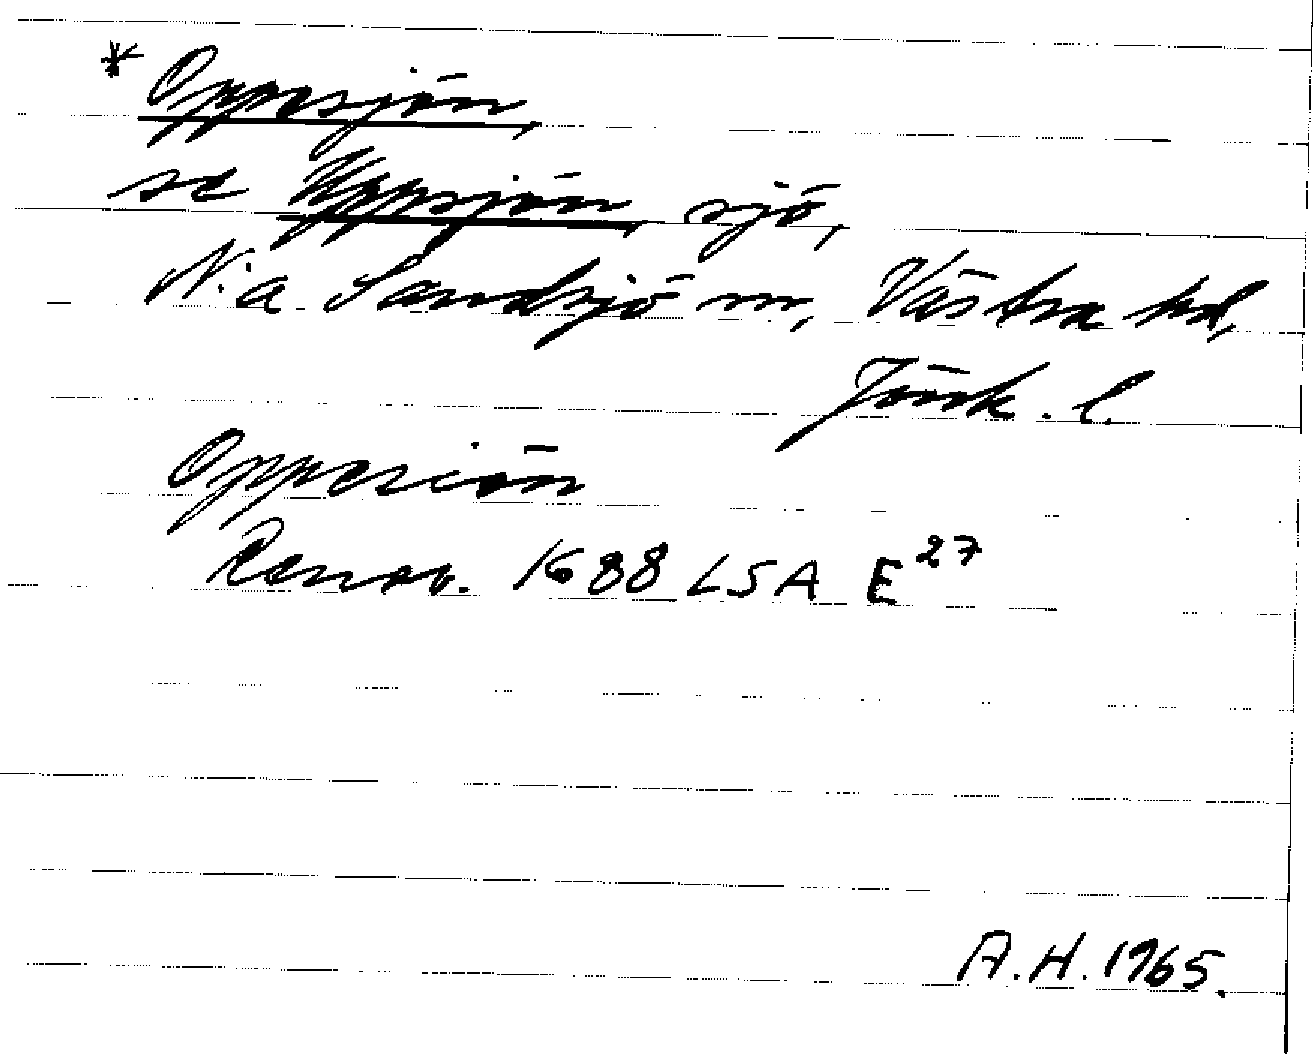 * Oppesjön,
se Uppsjön, sjö,
N:a Sandsjö sn, Västra hd,
Jönk. l.
Oppesiön
Renov. 1688 LSA E27
A.H. 1965.